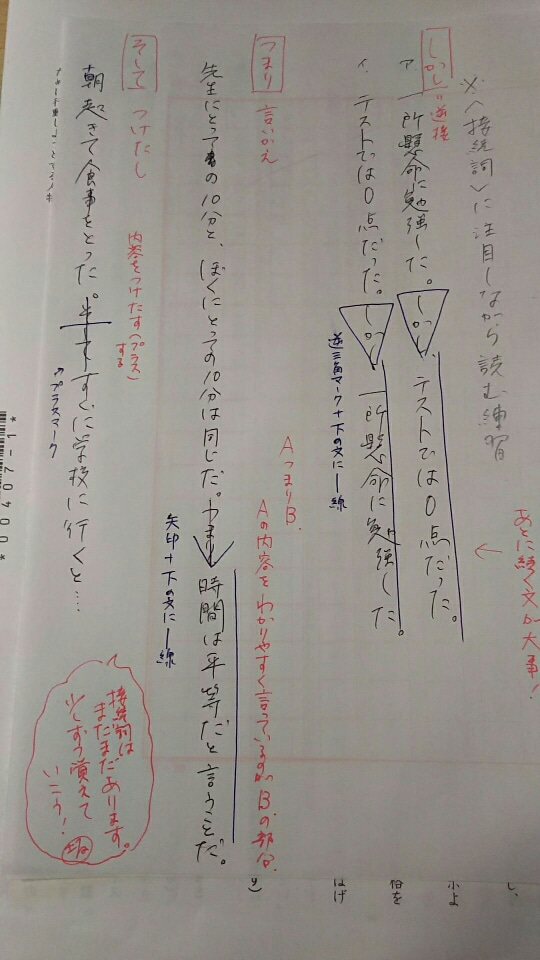 ※〈接続詞〉に注目しながら読む練習
あとに続く文が大事!
しかし=逆接
ア.一所懸命に勉強した。しかし、テストでは0点だった。
イ.テストでは0点だった。しかし、一所懸命に勉強した。
逆三角マーク+下の文に―線
つまり 言いかえ
AつまりB.
Aの内容をわかりやすく言っているのがBの部分.
先生にとっての10分と、ぼくにとっての10分は同じだ。つまり、時間は平等だと言うことだ。
矢印+下の文に―線
そして つけたし
内容をつけたす(プラス)
する
朝起きて食事をとった。そしてすぐに学校に行くと…
↑プラスマーク
接続詞は
まだまだあります。
少しずつ覚えて
いこう!
*00407-1*
し、
小よ
俗を
はげ